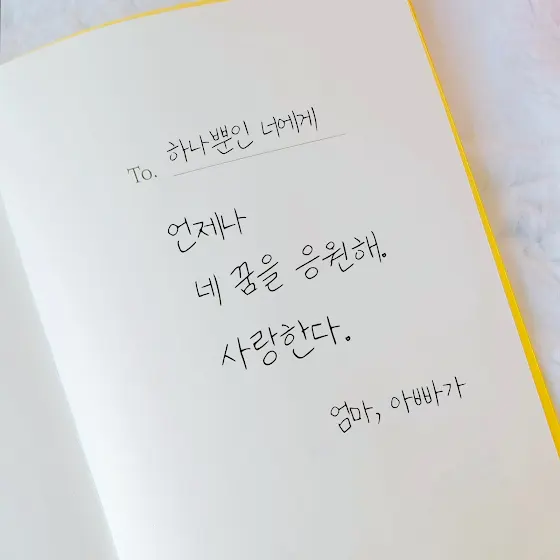 To. 하나뿐인 너에게
언제나
네 꿈을 응원해.
사랑한다.
엄마, 아빠가